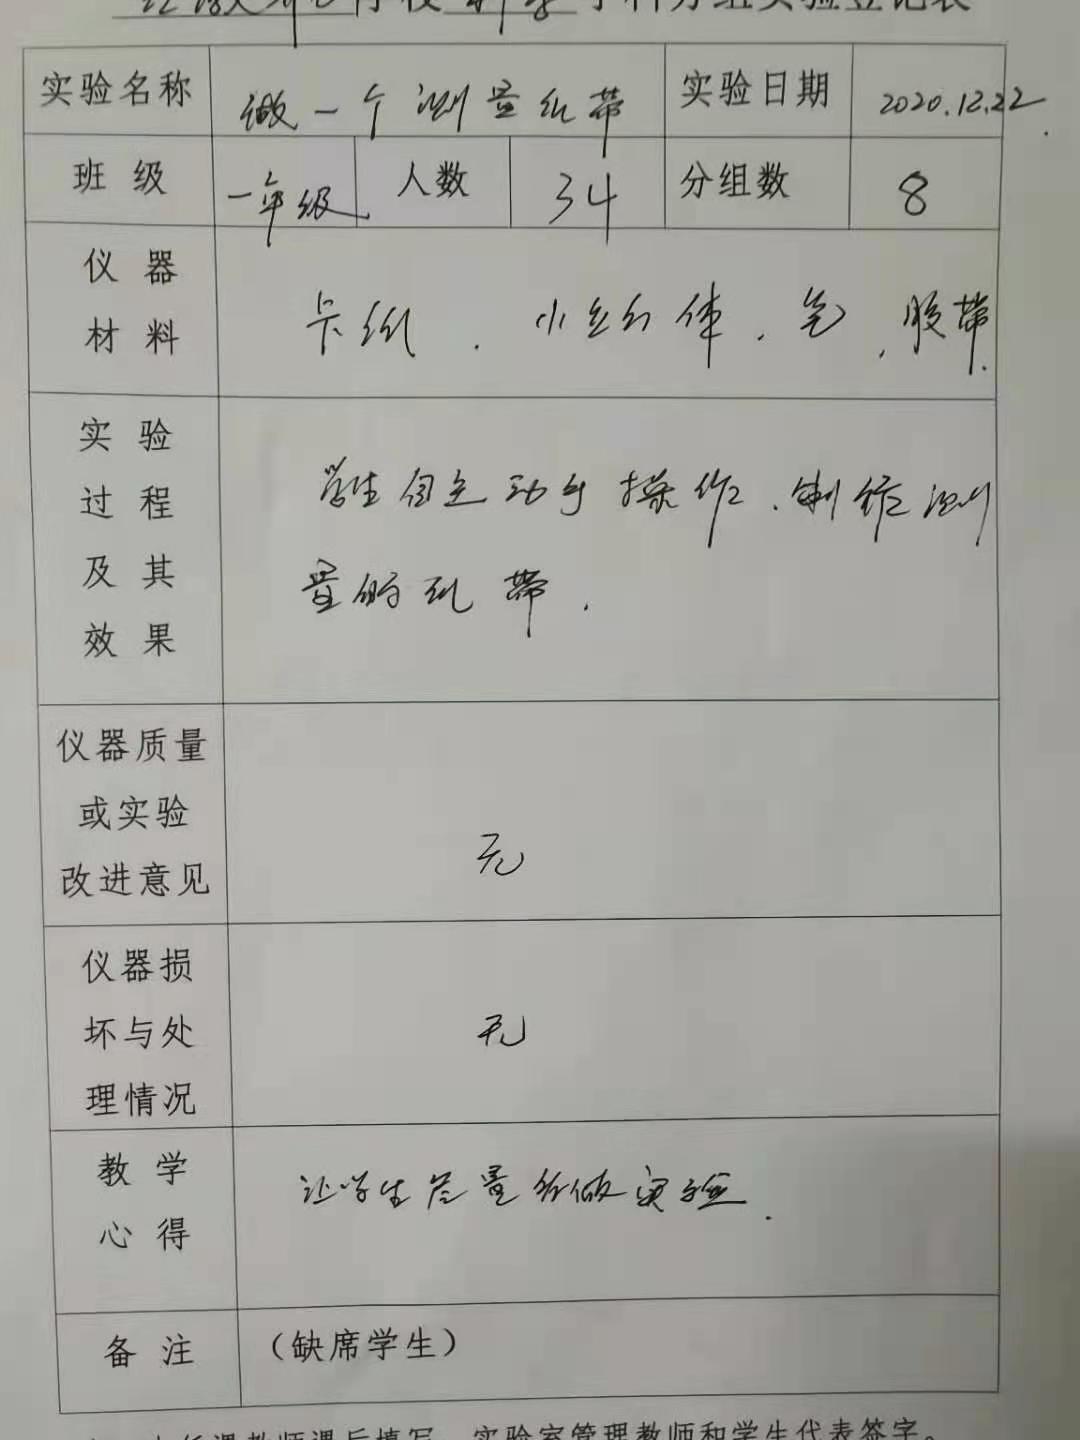 学校 科学 学科分组实验登记表
实验名称 做一个测量纸带 实验日期 2020.12.22.
班 级 一年级 人数 34 分组数 8
仪 器
材 料
卡纸、小立方体、笔、胶带.
实 验
过 程
及 其
效 果
学生自主动手操作、制作测
量的纸带.
仪器质量
或实验
改进意见
无
仪器损
坏与处
理情况
无
教 学
心 得
让学生尽量多做实验.
备 注 （缺席学生）
任课教师课后填写，实验室管理教师和学生代表签字。